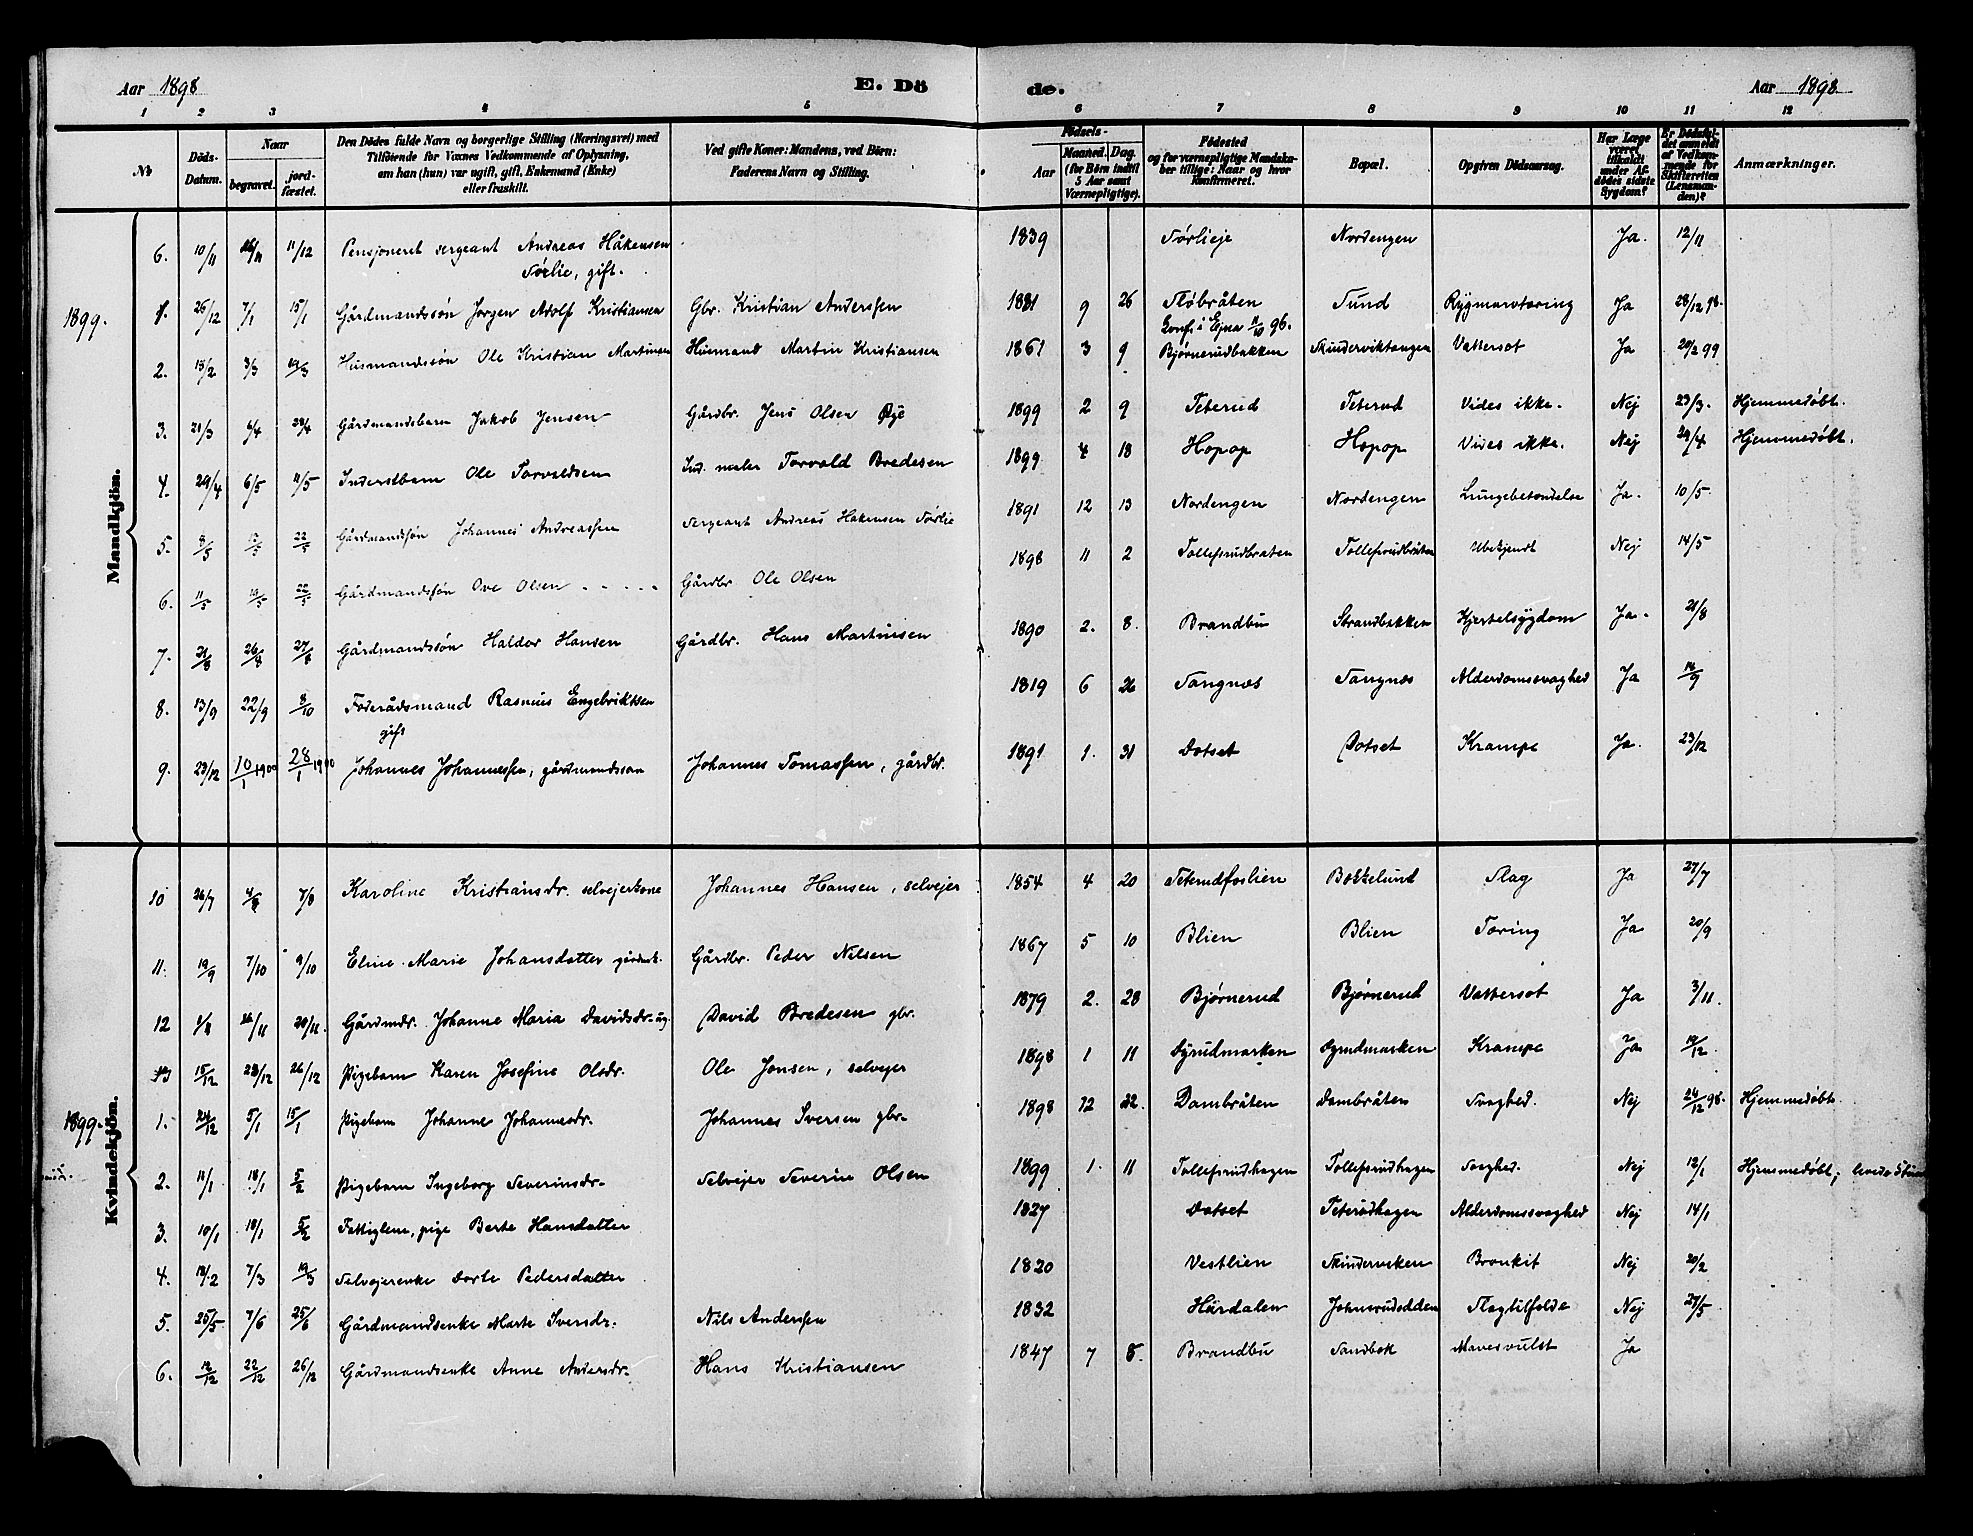 Aar 1898 E. Dö de. Aar 1898
1 2 3 4 5 6 7 8 9 10 11 12
№
Döds-Datum.
Naar
begravet.
jordfæstet.
Den Dödes fulde Navn og borgerlige Stilling (Næringsvei) med
Tilföiende for Voxnes Vedkommende af Oplysning,
om han (hun) var ugift, gift, Enkemand (Enke)
eller fraskilt.
Ved gifte Koner: Mandens, ved Börn:
Faderens Navn og Stilling.
Födsels-
Aar
Maaned. Dag.
(for Börn indtil
5 Aar samt
Værnepligtige).
Födested
og for værnepligtige Mandskaber tillige: Naar og hvor
Konfirmeret.
Bopæl.
Opgiven Dödsaarsag.
Har Læge
været
tilkaldt
under Afdödes sidste
Sygdom?
Er Dödsfaldet anmeldt
af Vedkommende for
Skifteretten
(Lensmanden)?
Anmærkninger.
Mandkjön.
6. 10/11 11/12 Pensjoneret sergeant Andreas Håkensen 1839 Sørlieje Nordengen Ja. 12/11
Sørlie, gift.
1899.
1. 26/12 7/1 15/1 Gårdmandssön Jørgen Adolf Kristiansen Gbr. Kristian Anderssen 1881 9 26 Fløbråten Sund Rygmarvtæring Ja 28/12 98.
Konf. i Ejna 11/10 96.
2. 18/2 3/3 19/3 Husmandssön Ole Kristian Martinsen Husmand Martin Kristiansen 1861 3 9 Bjørnerudbakken Skinderviktangen Vattersot Ja 20/2 99
3. 21/3 4/4 23/4 Gårdmandsbarn Jakob Jensen Gårdbr. Jens Olsen Øye 1899 2 9 Teterud Teterud Vides ikke. Nej 23/3. Hjemmedøbt.
4. 29/4 6/5 11/5 Inderstbarn Ole Torvaldsen Ind. maler Torvald Bredesen 1899 4 18 Hopop Hopop Vides ikke. Nej 29/4 Hjemmedøbt.
5. 8/5 15/5 22/5 Gårdmandssön Johannes Andreassen Sergeant Andreas Håkensen Sørlie 1891 12 13 Nordengen Nordengen Lungebetendelse Ja. 10/5
6. 11/5 19/5 22/5 Gårdmandssön Ove Olsen Gårdbr. Ole Olsen 1898 11 2 Tollefsrudbråten Tollefsrudbråten Ubekjendt Nej 14/5
7. 21/8 26/8 27/8 Gårdmandssön Haldor Hansen Gårdbr. Hans Martinsen 1890 2. 8. Brandbu Strandbakken Kjertelsygdom Ja. 21/8
8. 13/9 22/9 8/10 Föderådsmand Rasmus Engebriktsen 1819 6 26 Sangnæs Sangnæs Alderdomssvaghed Ja 14/9
gift
9. 23/12 10/1 1900 28/1 1900 Johannes Johannessen, gårdmandssøn Johannes Tomassen, gårdbr. 1891 1. 31 Dotset Dotset Krampe Ja. 23/12
Kvindekjön.
10 26/7 7/8 Karoline Kristiansdr. selvejerkone Johannes Hansen, selvejer 1854 4 20 Teterudfoslien Bokkelund Slag Ja 27/7
11. 19/9 7/10 9/10 Eline Marie Johansdatter Gårdbr. Peder Nilsen 1867 5 10 Blien Blien Tæring Ja 20/9
12 1/11 26/11 20/11. Gårdmdr. Johanne Maria Davidsdr. ug. David Bredesen gbr. 1879 2. 28 Bjørnerud Bjørnerud Vattersot Ja 3/11.
15/12 23/12 26/12 Pigebarn Karen Josefine Olsdr. Ole Jensen, selvejer 1898 1 11 Dyrudmarken Dyrudmarken Krampe Ja 19/12.
1899.
1. 24/12 5/1 15/1 Pigebarn Johanne Johannesdr. Johannes Iversen gbr. 1898 12 22. Dambråten Dambråten Svaghed. Nej 24/12 98. Hjemmedøbt.
2. 11/1 18/1 5/2 Pigebarn Ingeborg Severinsdr. Selvejer Severin Olsen 1899 1. 11 Tollefsrudhagen Tollefsrudhagen Svaghed. Nej 12/1 Hjemmedøbt; levede
3. 10/1 18/1 5/2 Fattiglem, pige Berte Hansdatter 1827 Dotset Teterudhagen Alderdomssvaghed Nej 14/1
4. 18/2 7/3 19/3 Selvejerenke Dorte Pedersdatter 1820 Vestlien Skinderveken Bronkit Nej 20/2
5. 25/5 7/6 25/6 Gårdmandsenke Marte Iversdr. Nils Anderssen 1832 Hårdalen Johnsrudodden Slagtilfælde Nej 27/5
6. 12/12 22/12 26/12 Gårdmandsenke Anne Andersdr. Hans Kristiansen 1847 7 8. Brandbu Sandbok Mavesvulst Ja